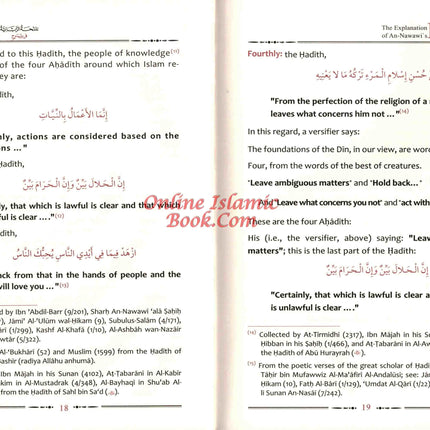 ed to this Ḥadīth, the people of knowledge⁽¹¹⁾
of the four Aḥādīth around which Islam re-
ey are:
dīth,
إِنَّمَا الأَعْمَالُ بِالنِّيَّاتِ
nly, actions are considered based on the
ons ..."
Ḥadīth,
إِنَّ الْحَلَالَ بَيِّنٌ وَإِنَّ الْحَرَامَ بَيِّنٌ
ly, that which is lawful is clear and that which
wful is clear ...."⁽¹²⁾
dīth,
ازْهَدْ فِيمَا فِي أَيْدِي النَّاسِ يُحِبُّكَ النَّاسُ
ack from that in the hands of people and the
will love you ..."⁽¹³⁾
ed by Ibn ʿAbdil-Barr (9/201), Sharḥ An-Nawawī ʿalā Ṣaḥīḥ
), Jāmiʿ Al-ʿUlūm wal-Ḥikam (9), Subulus-Salām (4/171),
rī (1/299), Kashf Al-Khafā (1/10), Al-Ashbāh wan-Nazāir
wtār (5/322).
Al-Bukhārī (52) and Muslim (1599) from the Ḥadīth of
Bashīr (radiya Allāhu anhumā).
Ibn Mājah in his Sunan (4102), Aṭ-Ṭabarānī in Al-Kabīr
kim in Al-Mustadrak (4/348), Al-Bayhaqī in Shuʿab Al-
from the Ḥadīth of Sahl bin Saʿd
18
The Explanation
of An-Nawawī's,
Fourthly: the Ḥadīth,
حُسْنِ إِسْلَامِ الْمَرْءِ تَرْكُهُ مَا لَا يَعْنِيهِ
"From the perfection of the religion of a
leaves what concerns him not ..."⁽¹⁴⁾
In this regard, a versifier says:
The foundations of the Dīn, in our view, are word
Four, from the words of the best of creatures.
'Leave ambiguous matters' and 'Hold back...'
And 'Leave what concerns you not' and 'act with
These are the four Aḥādīth:
His (i.e., the versifier, above) saying: "Leav
matters"; this is the last part of the Ḥadīth:
إِنَّ الْحَلَالَ بَيِّنٌ وَإِنَّ الْحَرَامَ بَيِّنٌ
"Certainly, that which is lawful is clear a
is unlawful is clear ...."
⁽¹⁴⁾ Collected by At-Tirmidhī (2317), Ibn Mājah in his Su
Ḥibban in his Ṣaḥīḥ (1/466), and Aṭ-Ṭabarānī in Al-Aw
the Ḥadīth of Abū Hurayrah
⁽¹⁵⁾ From the poetic verses of the great scholar of Ḥadīth,
Ṭāhir bin Mufawwiz Al-Maʿāfirī Al-Andalusī: see: Jām
Ḥikam (10), Fatḥ Al-Bārī (1/129), ʿUmdat Al-Qārī (1/22
li Sunan An-Nasāī (7/242).
19
Online Islamic
Book.Com